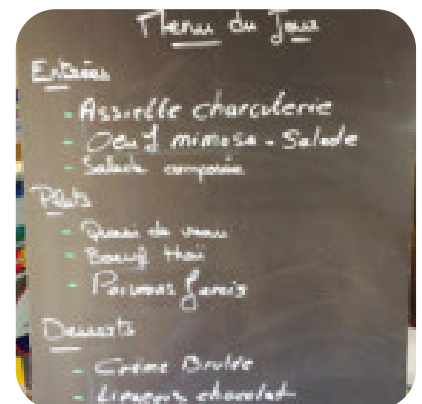 Menu du Jour
Entrées
- Assiette charcuterie
- Oeuf mimosa - Salade
- Salade composée
Plats
- de veau
- Boeuf thaï
- Poivrons farcis
Desserts
- Crème Brulée
- chocolat